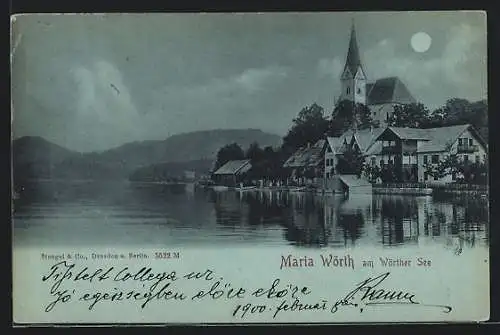 Stengel & Co., Dresden u. Berlin. 5022 M
Maria Wörth am Wörther See
Tisztelt Collega ur,
Jó egészségben
1900. február